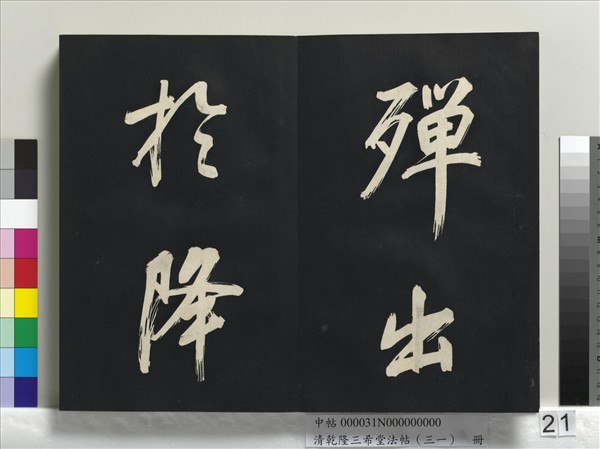 殫出
於降
中帖 000031N000000000
清乾隆三希堂法帖（三一） 冊
21